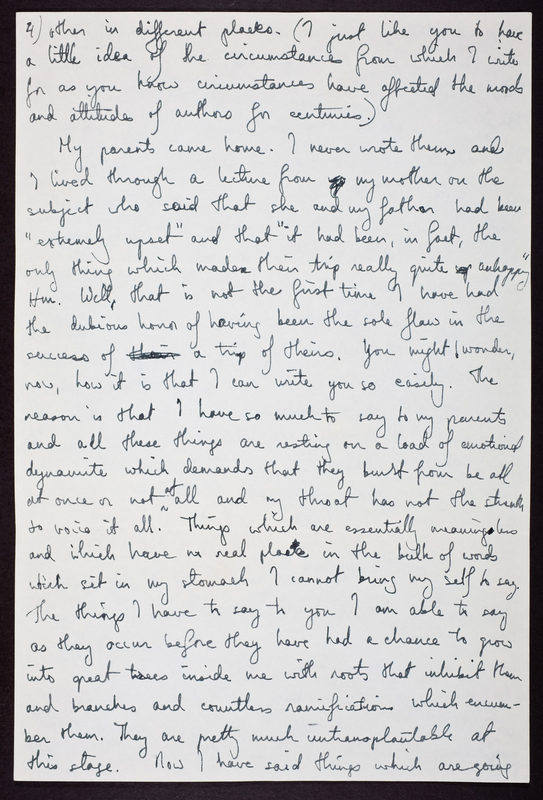 4) other in different places. (I just like you to have
a little idea of the circumstances from which I write
for as you know circumstances have affected the moods
and attitudes of authors for centuries.)
My parents came home. I never wrote them and
I lived through a lecture from my mother on the
subject who said that she and my father had been
"extremely upset" and that "it had been, in fact, the
only thing which made their trip really quite unhappy"
Hm. Well, that is not the first time I have had
the dubious honor of having been the sole flaw in the
success of their a trip of theirs. You might wonder,
now, how it is that I can write you so easily. The
reason is that I have so much to say to my parents
and all these things are resting on a load of emotional
dynamite which demands that they burst from be all
at once or not at all and my throat has not the strenth
to voice it all. Things which are essentially meaningless
and which have no real place in the bulk of words
which sit in my stomach I cannot bring my self to say.
The things I have to say to you I am able to say
as they occur before they have had a chance to grow
into great trees inside me with roots that inhibit them
and branches and countless ramifications which encum-
ber them. They are pretty much untransplantable at
this stage. Now I have said things which are going